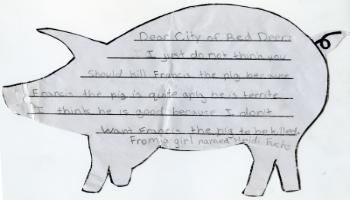 Dear City of Red Deer:
I just do not think you
should kill Francis the pig because
Francis the pig is quite aply he is territe
I think he is good because I don't
Want Francis the pig to be killed.
From a girl named Heidi